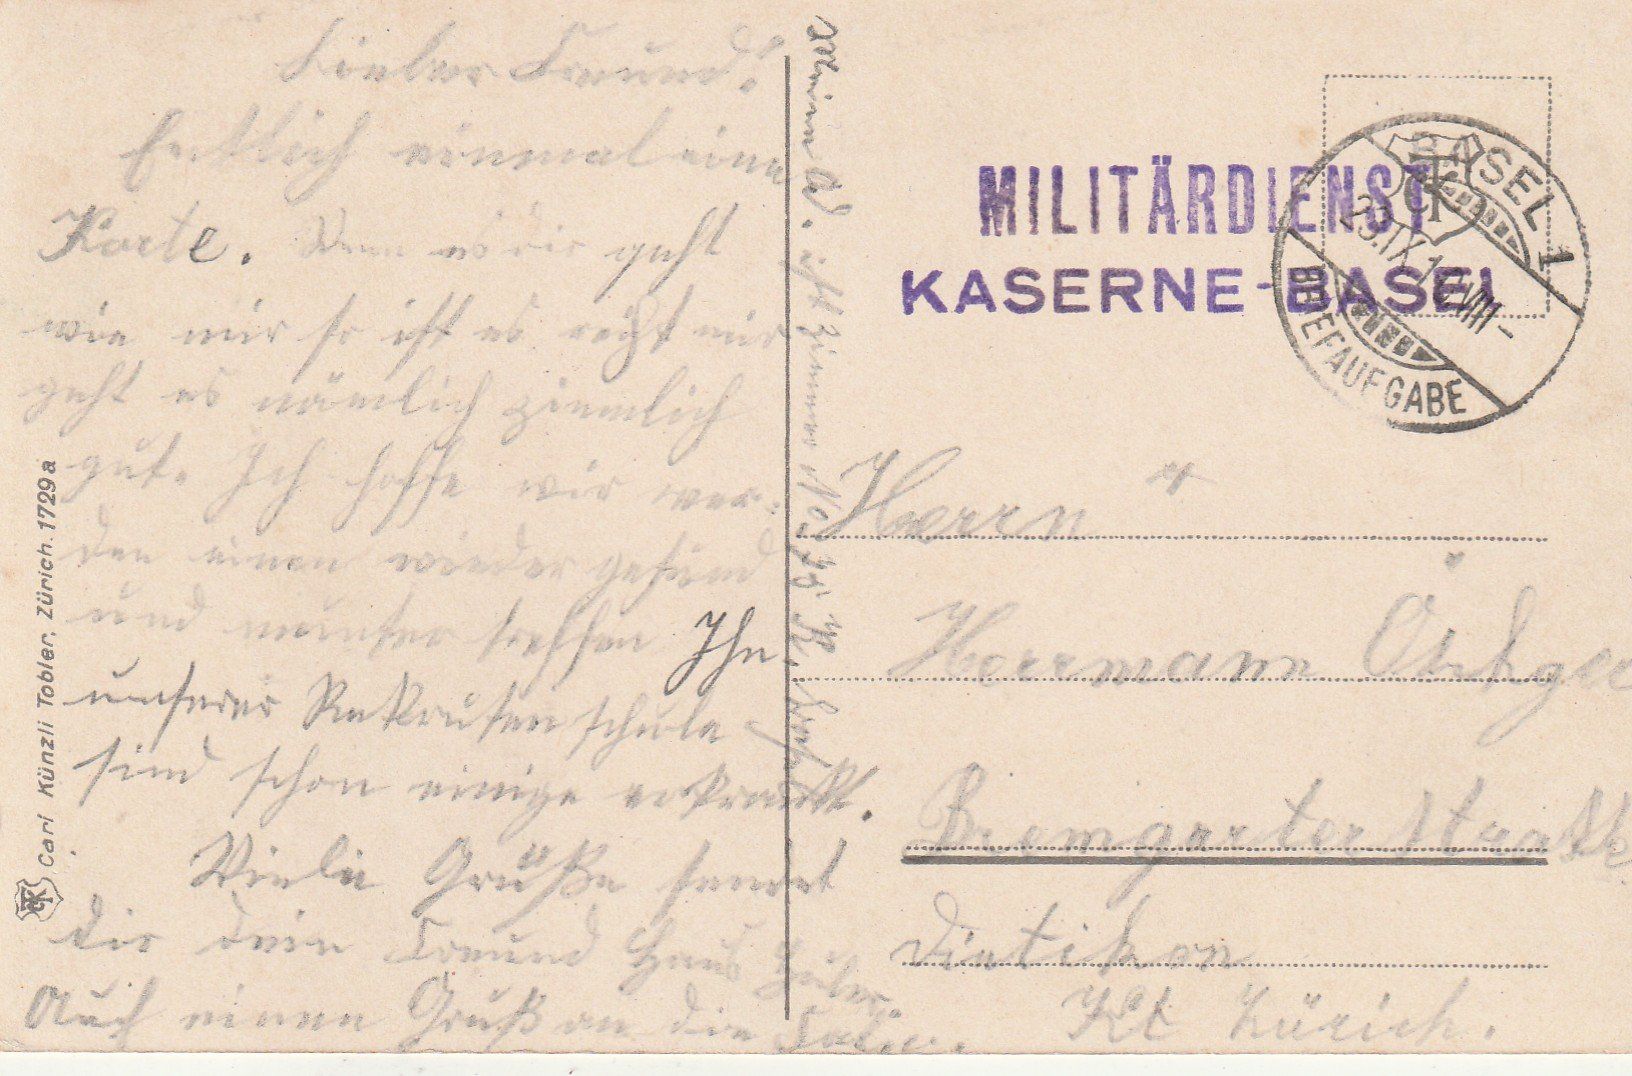 Lieber Freund!
Entlich einmal eine
Karte. Wenn es dir geht
wie mir so ist es recht mir
geht es nämlich ziemlich
gut. Ich hoffe wir wer-
den einen wieder gesund
und munter treffen Ihn
unserer Rekrutenschule
sind schon einige erkrankt.
Viele Grüße sendet
dir dein Freund Hans Huber.
Auch einen Gruß an die
Meine A. ist Zimmer No.
MILITÄRDIENST
KASERNE-BASEL
BASEL 1
BRIEFAUFGABE
Herrn
Herrmann
Bremgarterstrasse
Dietikon
Kt Zürich.
Carl Künzli Tobler, Zürich. 1729a